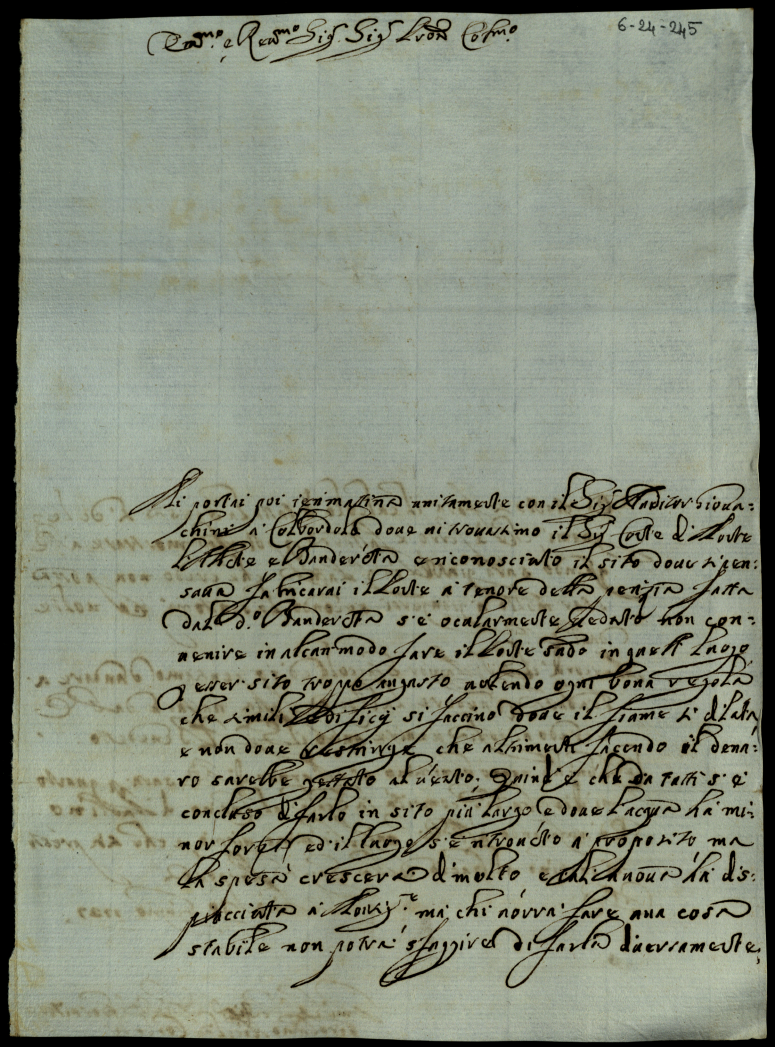 6-24-245
Em.mo e Rev.mo Sig.r Sig.r Pron Col.mo
Mi portai poi ieri mattina unitamente con il Sig.r Auditor Giova=
chini à Colbordolo dove ui trouassimo il Sig.r Conte di Monte
e Banderetta e riconosciuto il sito doue si pen=
saua fabricarui il Ponte à tenore della perizia fatta
dal d.o Banderetta s'è ocularmente ueduto non con=
uenire in alcun modo fare il Ponte sudo in quell luogo
esser sito troppo angusto uolendo ogni bona regola
che simili Edificij si faccino doue il fiume si dilata
e non doue restringe che altrimente facendo il dena=
ro sarebbe gettato al uento; Quindi è che da tutti s'è
concluso di farlo in sito più largo e doue l'acqua hà mi=
nor forza ed il luogo s'è ritrouato à proposito ma
la spesa crescerà di molto e tal nuoua hà dis=
piacciuta à ma chi uorrà fare una cosa
stabile non potrà sfuggire di farla diuersamente;